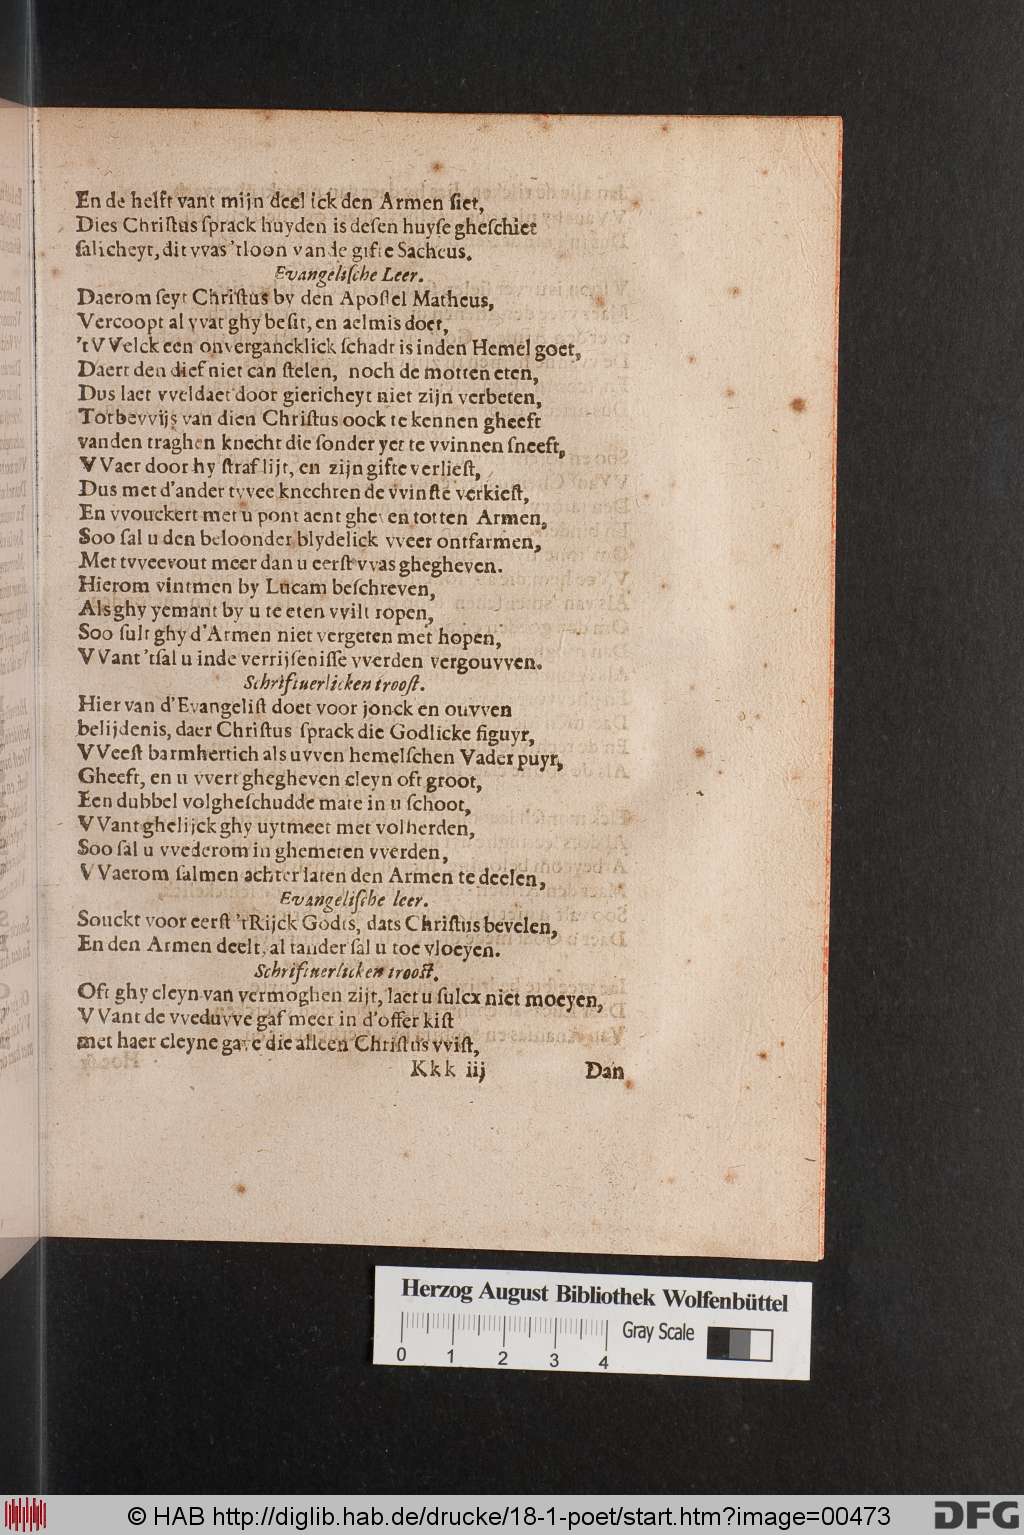 En de helft vant mijn deel ick den Armen siet,
Dies Chriſtus ſprack huyden is deſen huyſe gheſchiet
ſalicheyt, dit vvas 'tloon van de gifte Sacheus.
Evangeliſche Leer.
Daerom ſeyt Chriſtus by den Apoſtel Matheus,
Vercoopt al vvat ghy beſit, en aelmis doet,
'tVVelck een onvergancklick ſchadt is inden Hemel goet,
Daert den dief niet can ſtelen, noch de motten eten,
Dus laet vveldaet door giericheyt niet zijn verbeten,
Totbevvijs van dien Chriſtus oock te kennen gheeft
vanden traghen knecht die ſonder yet te vvinnen ſneeft,
VVaer door hy ſtraf lijt, en zijn gifte verlieſt,
Dus met d'ander tvvee knechten de vvinſte verkieſt,
En vvouckert met u pont aent gheven totten Armen,
Soo ſal u den beloonder blydelick vveer ontfarmen,
Met tvveevout meer dan u eerſt vvas ghegheven.
Hierom vintmen by Lucam beſchreven,
Als ghy yemant by u te eten vvilt ropen,
Soo ſult ghy d'Armen niet vergeten met hopen,
VVant 'tſal u inde verrijſeniſſe vverden vergouvven.
Schriftuerlicken trooſt.
Hier van d'Evangeliſt doet voor jonck en ouvven
belijdenis, daer Chriſtus ſprack die Godlicke figuyr,
VVeeſt barmhertich als uvven hemelſchen Vader puyr,
Gheeft, en u vvert ghegheven cleyn oft groot,
Een dubbel volgheſchudde mate in u ſchoot,
VVant ghelijck ghy uytmeet met volherden,
Soo ſal u vvederom in ghemeten vverden,
VVaerom ſalmen achter laten den Armen te deelen,
Evangeliſche leer.
Souckt voor eerſt 'tRijck Godts, dats Chriſtus bevelen,
En den Armen deelt, al tander ſal u toe vloeyen.
Schriftuerlicken trooſt.
Oft ghy cleyn van vermoghen zijt, laet u ſulcx niet moeyen,
VVant de vveduvve gaf meer in d'offer kiſt
met haer cleyne gave die alleen Chriſtus vviſt,
Kkk iij Dan
Herzog August Bibliothek Wolfenbüttel
Gray Scale
0 1 2 3 4
© HAB http://diglib.hab.de/drucke/18-1-poet/start.htm?image=00473
DFG